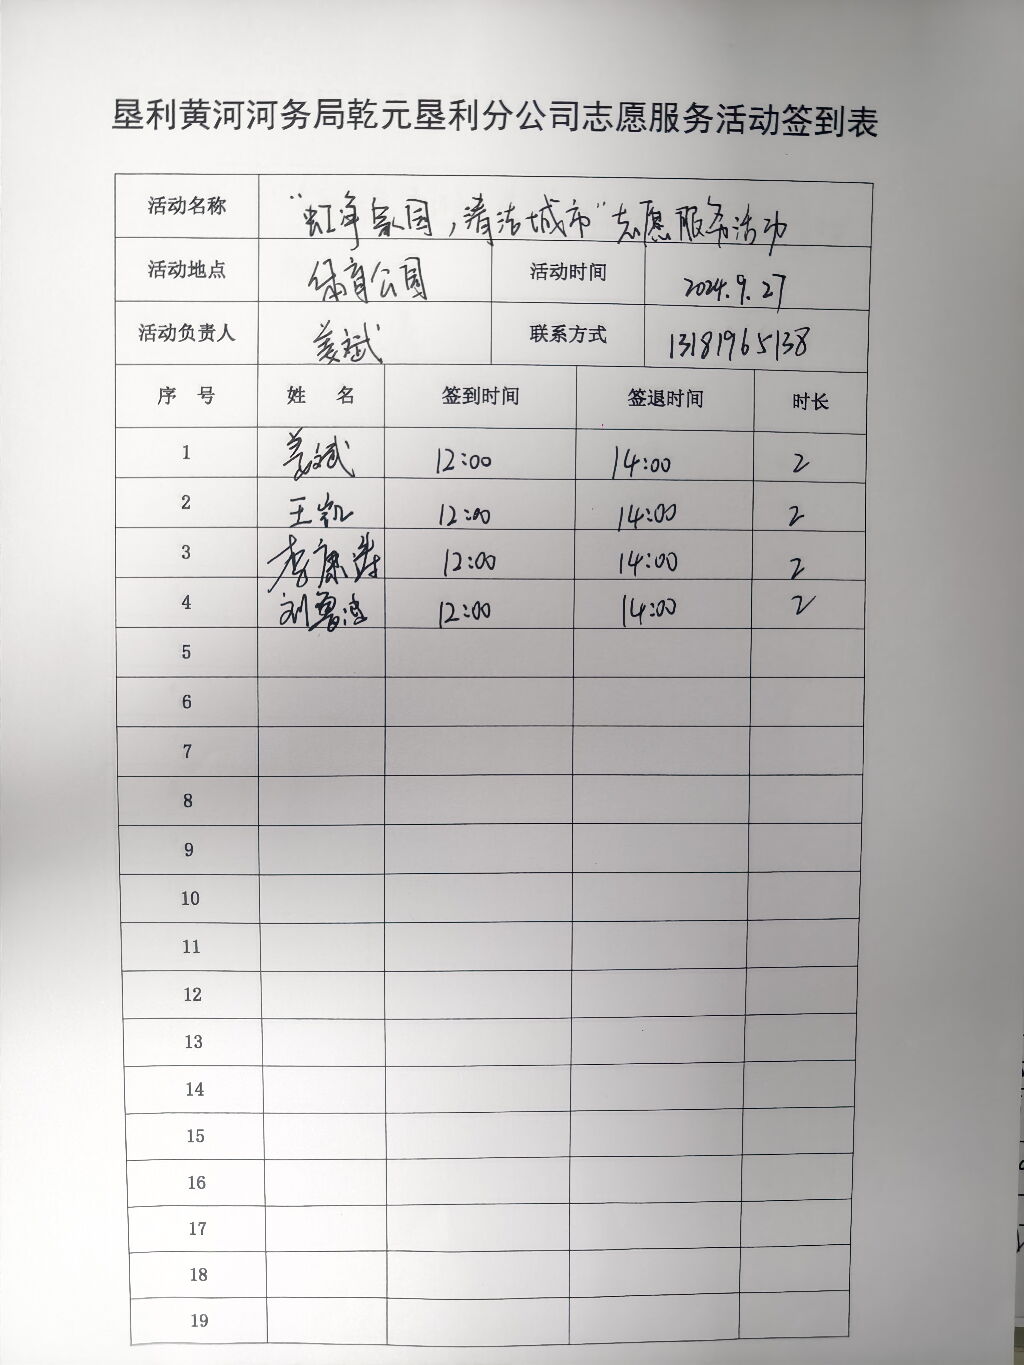 垦利黄河河务局乾元垦利分公司志愿服务活动签到表
活动名称 "虹净家园，清洁城市"志愿服务活动
活动地点 体育公园 活动时间 2024.9.27
活动负责人 姜斌 联系方式 13181965138
序 号 姓 名 签到时间 签退时间 时长
1 姜斌 12:00 14:00 2
2 王凯 12:00 14:00 2
3 李康 12:00 14:00 2
4 刘鲁 12:00 14:00 2
5
6
7
8
9
10
11
12
13
14
15
16
17
18
19